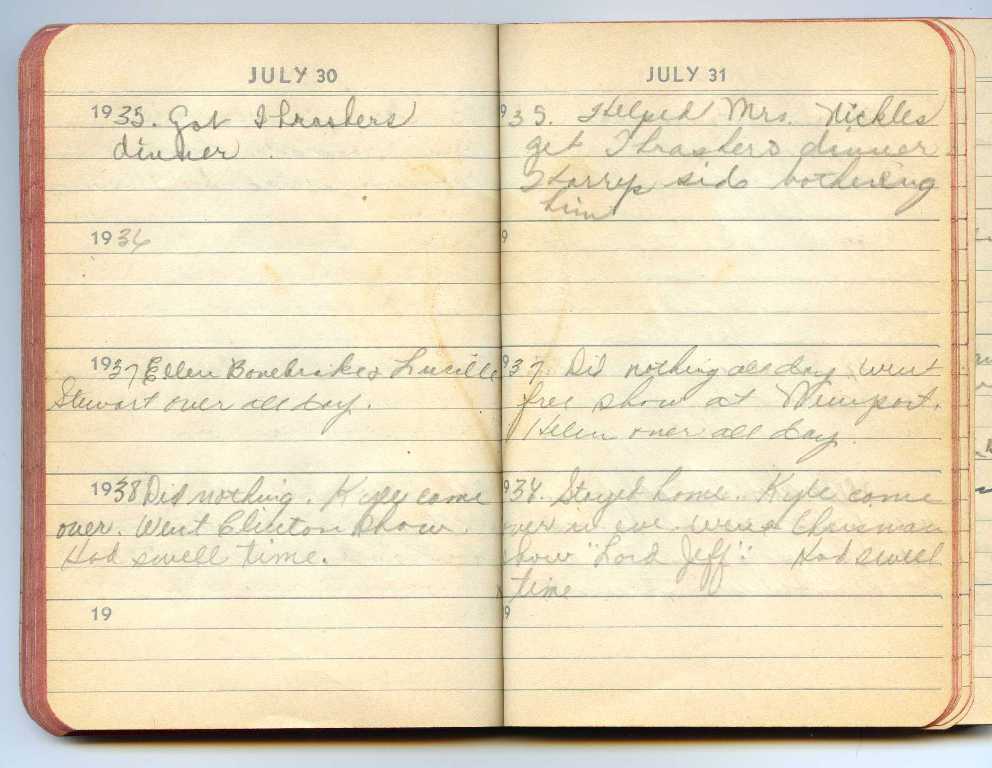 JULY 30
1935. Got Thrashers
dinner.
1936
1937 Ellen Bonebrake & Lucille
Stewart over all day.
1938 Did nothing. Kyle come
over. Went Clinton show.
Had swell time.
19
JULY 31
935. Helped Mrs. Nickles
get Thrashers dinner
Harrys side bothering
him
9
937. Did nothing all day went
free show at Newport.
Helen over all day
938. Stayed home. Kyle come
over in eve. went Chrisman
show "Lord Jeff". Had swell
time
9